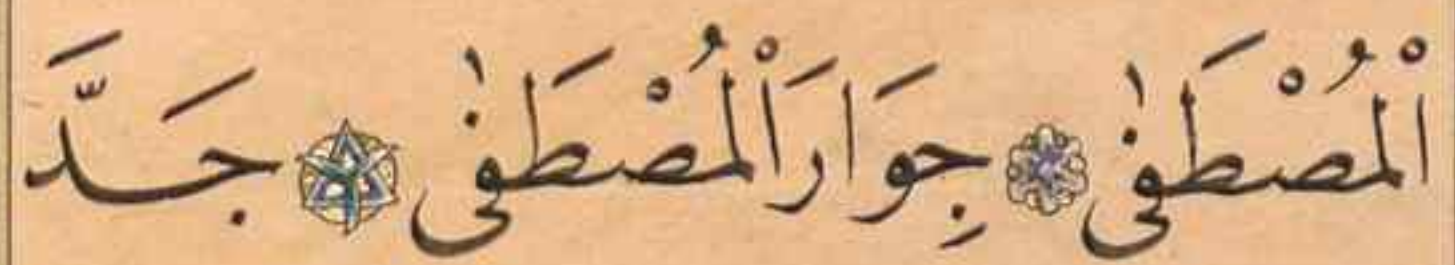 الْمُصْطَفٰى جِوَارَ الْمُصْطَفٰى جَدَّ